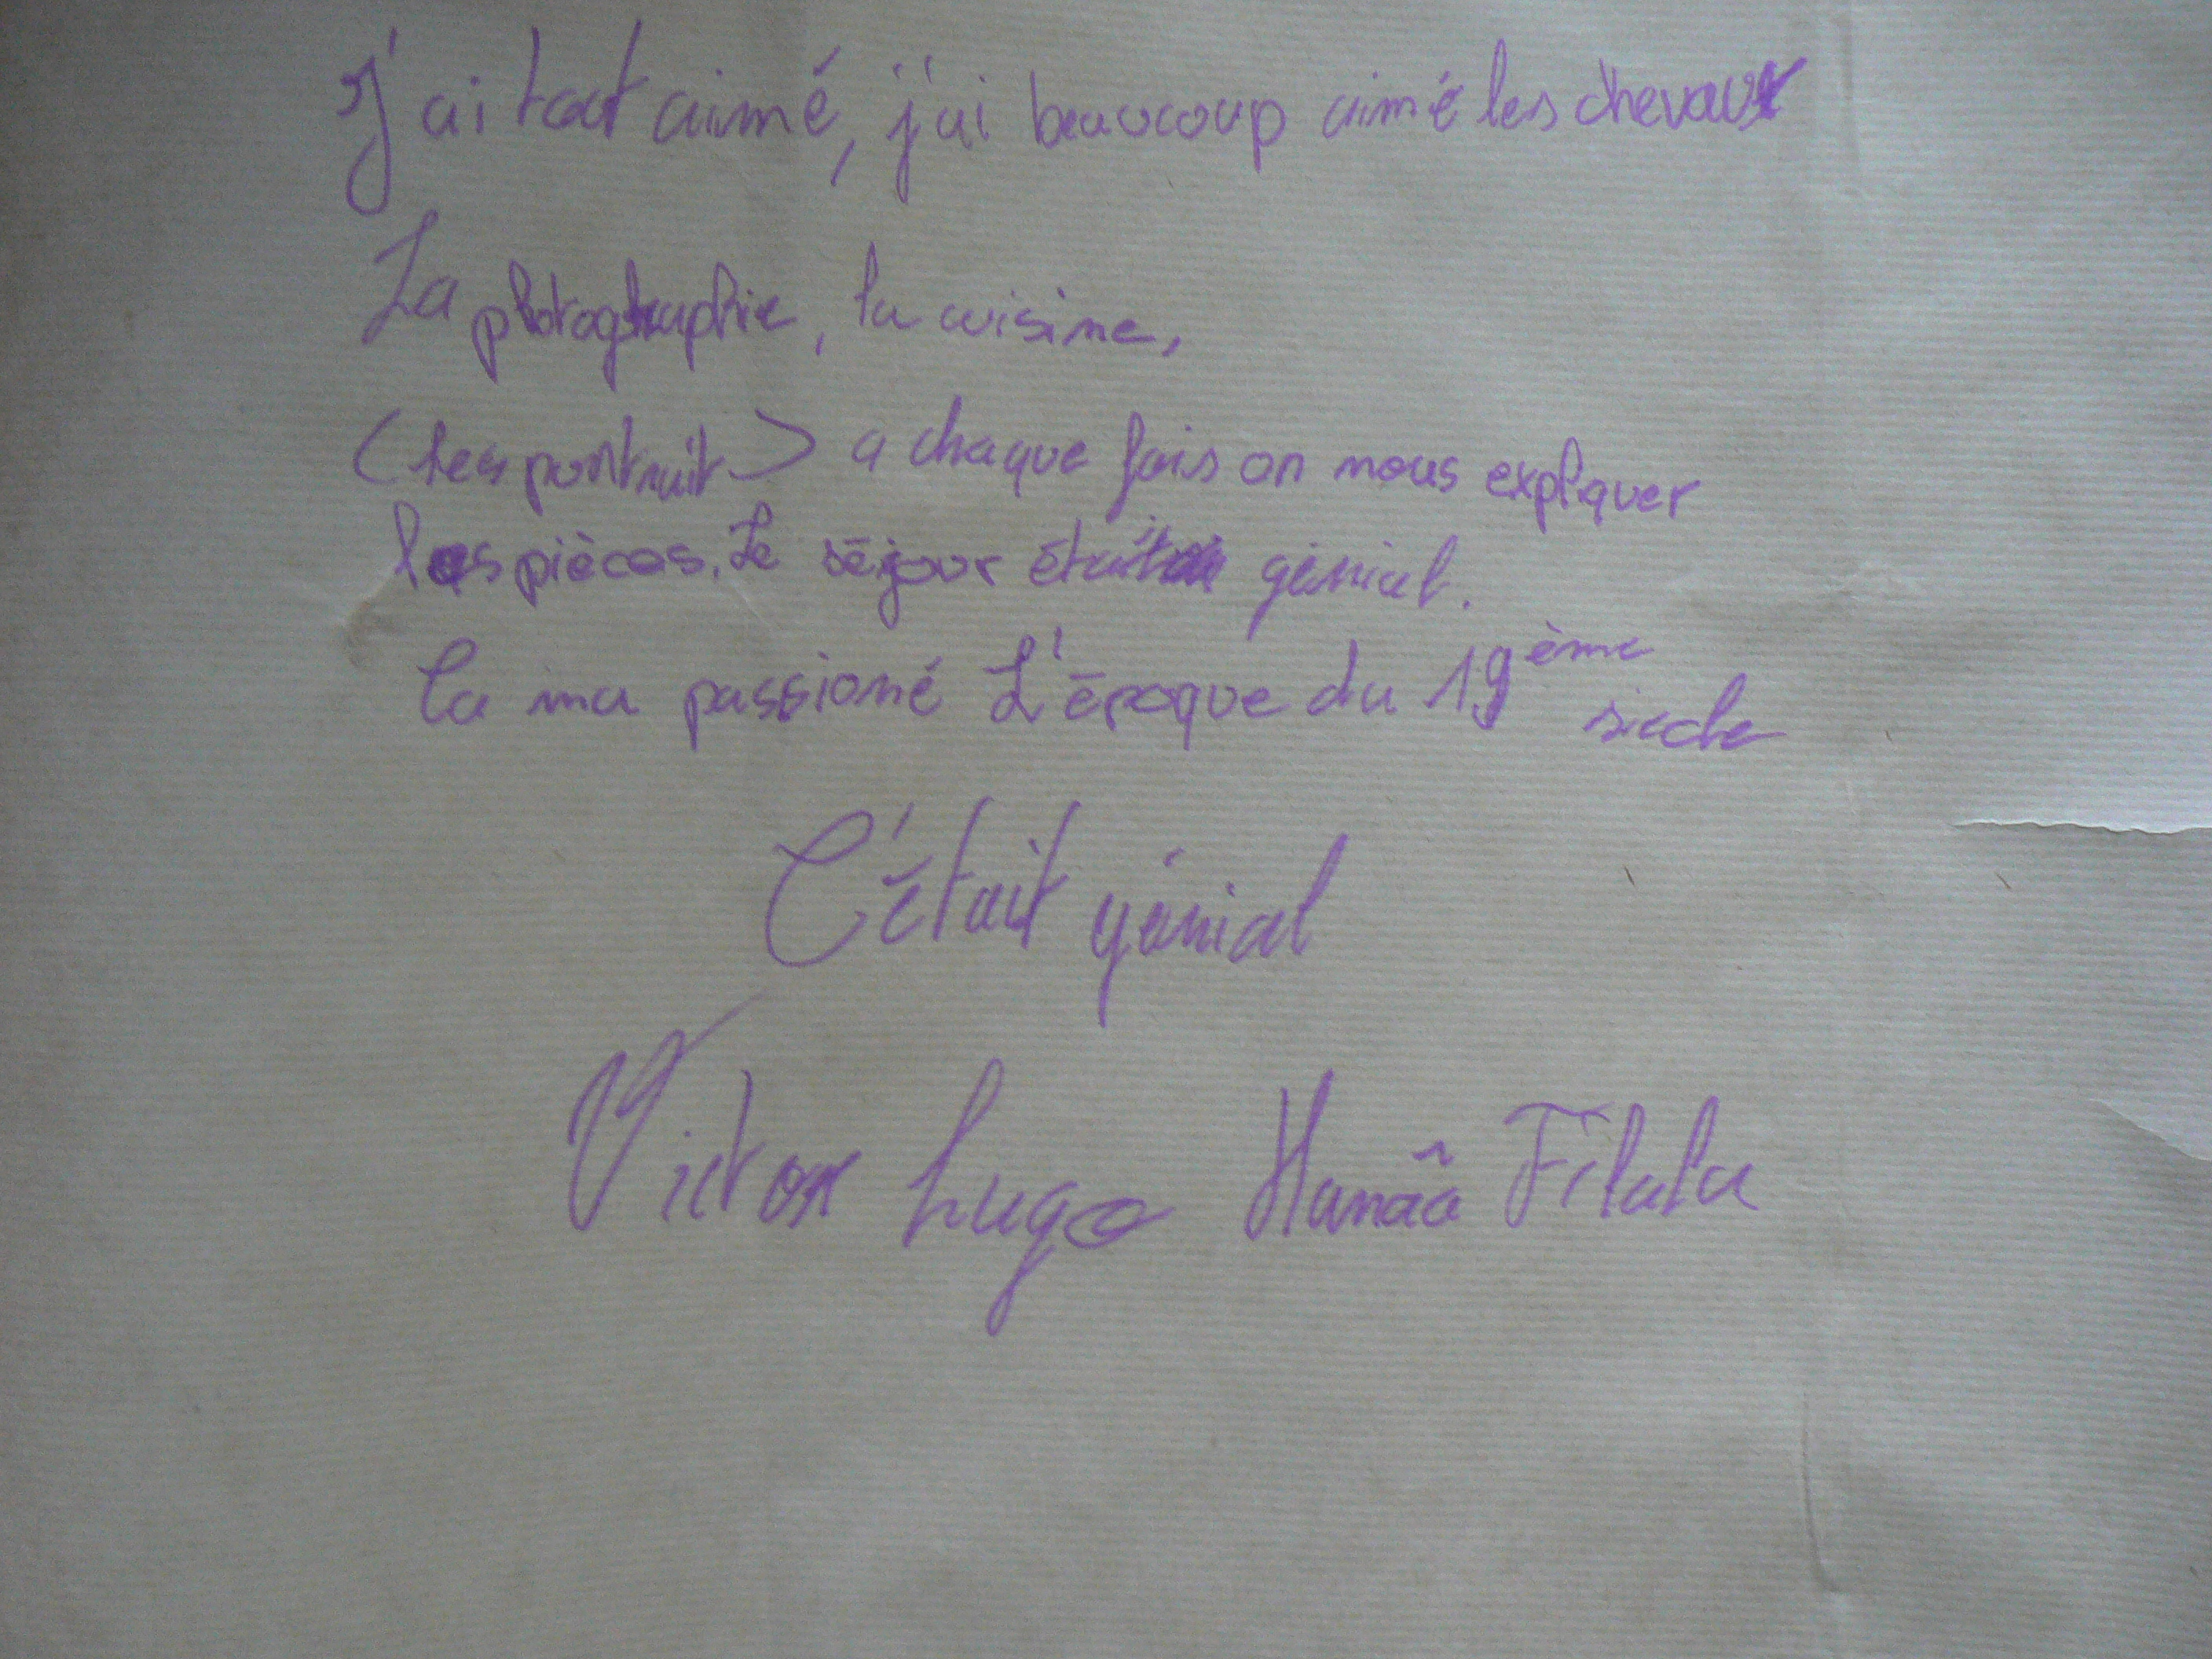 J'ai tout aimé, j'ai beaucoup aimé les chevaux
La photographie, la cuisine,
(les portrait) a chaque fois on nous expliquer
les pièces. Le séjour était génial.
Ca ma passioné L'époque du 19ème siecle
C'était génial
Victor hugo Hanaã Filala